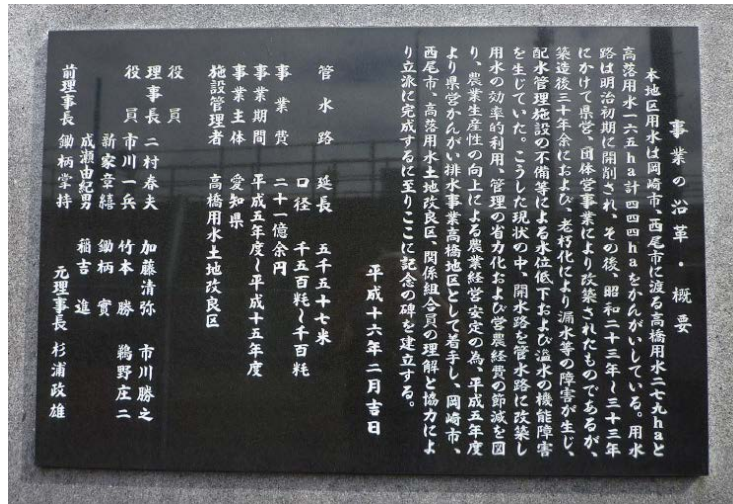 事業の沿革・概要
本地区用水は岡崎市、西尾市に渡る高橋用水二七九haと
高落用水一六五ha計四四四haをかんがいしている。用水
路は明治初期に開削され、その後、昭和二十三年~三十三年
にかけて県営、団体営事業により改築されたものであるが、
築造後三十年余におよび、老朽化により漏水等の障害が生じ、
配水管理施設の不備等による水位低下および溢水の機能障害
を生じていた。こうした現状の中、開水路を管水路に改築し
用水の効率的利用、管理の省力化および営農経費の節減を図
り、農業生産性の向上による農業経営安定の為、平成五年度
より県営かんがい排水事業高橋地区として着手し、岡崎市、
西尾市、高落用水土地改良区、関係組合員の理解と協力によ
り立派に完成するに至りここに記念の碑を建立する。
平成十六年二月吉日
管水路 延長 五千五十七米
口径 千五百粍~千百粍
事業費 二十一億余円
事業期間 平成五年度~平成十五年度
事業主体 愛知県
施設管理者 高橋用水土地改良区
役員
理事長 二村春夫 加藤清弥 市川勝之
役員 市川一兵 竹本勝 鵜野庄二
新家章繕 鋤柄實
成瀬由紀男 稲吉進
前理事長 鋤柄掌持 元理事長 杉浦政雄